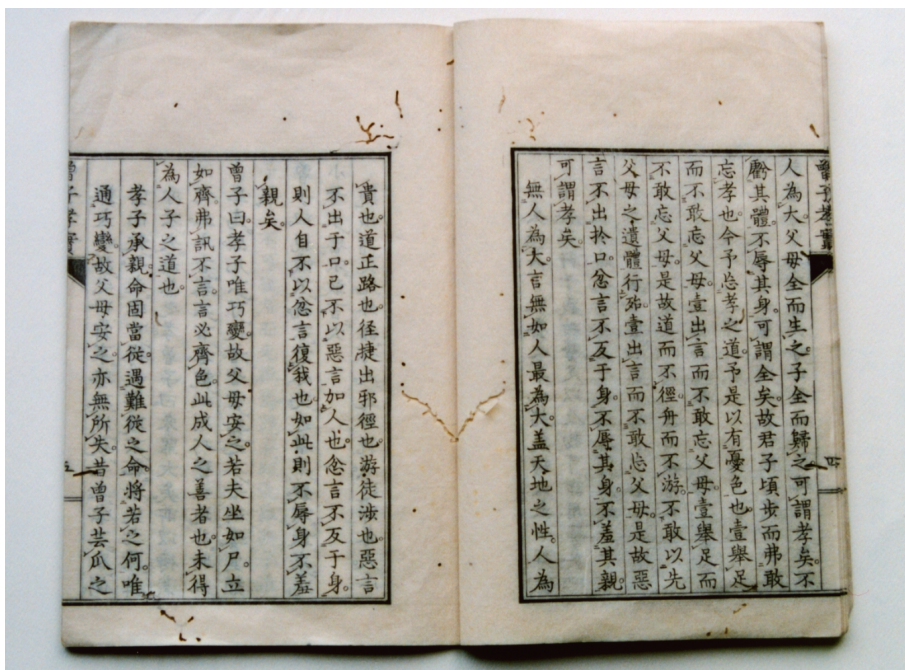 曾子孝實
四
人為大。父母全而生之。子全而歸之。可謂孝矣。不
虧其體。不辱其身。可謂全矣。故君子頃步而弗敢
忘孝也。今予忘孝之道。予是以有憂色也。壹舉足
而不敢忘父母。壹出言而不敢忘父母。壹舉足而
不敢忘父母。是故道而不徑。舟而不游。不敢以先
父母之遺體行殆。壹出言而不敢忘父母。是故惡
言不出扵口。忿言不反于身。不辱其身。不羞其親。
可謂孝矣。
無人為大。言無如人最為大。盖天地之性。人為
貴也。道正路也。徑捷出邪徑也。游徒涉也。惡言
不出于口。己不以惡言加人也。忿言不反于身。
則人自不以忿言復我也。如此則不辱身不羞
親矣。
曾子曰。孝子唯巧變。故父母安之。若夫坐如尸。立
如齊。弗訊不言。言必齊色。此成人之善者也。未得
為人子之道也。
孝子承親命。固當從。遇難從之命。將若之何。唯
通巧變。故父母安之。亦無所失。昔曾子芸瓜之
曾子孝實
五